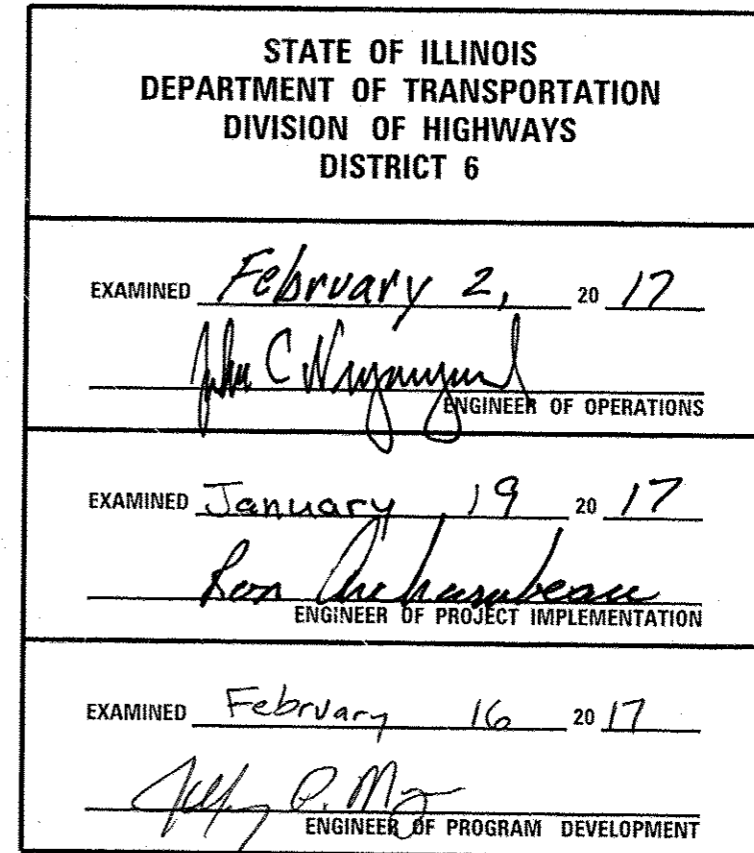 STATE OF ILLINOIS
DEPARTMENT OF TRANSPORTATION
DIVISION OF HIGHWAYS
DISTRICT 6
EXAMINED February 2, 20 17
John C
ENGINEER OF OPERATIONS
EXAMINED January 19 20 17
Ron
ENGINEER OF PROJECT IMPLEMENTATION
EXAMINED February 16 20 17
ENGINEER OF PROGRAM DEVELOPMENT